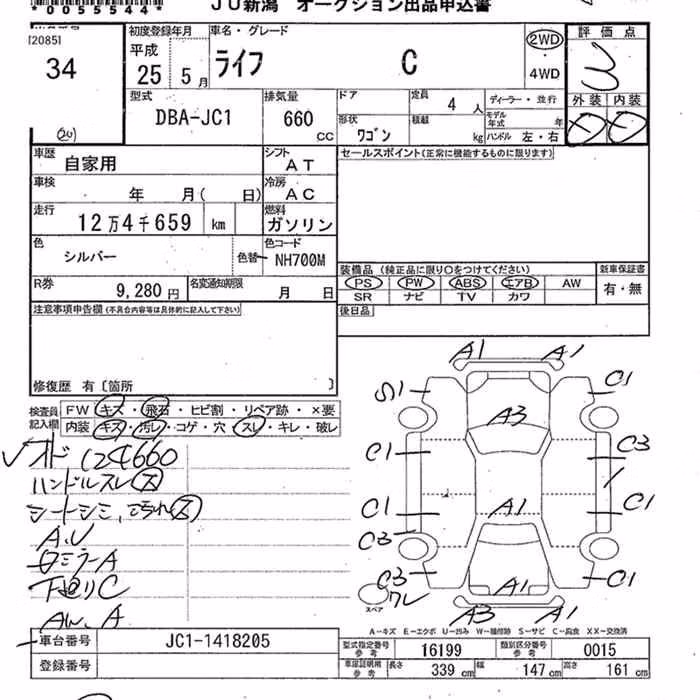 *0055544*
JU新潟 オークション出品申込書
[2085]
34
初度登録年月
平成
25 5月
車名・グレード
ライフ C
2WD
・
4WD
評価点
3
外装 内装
型式
DBA-JC1
排気量
660 CC
ドア
定員 4 人
ディーラー・並行
形状 ワゴン
積載 kg
モデル年式 年
ハンドル 左・右
車歴 自家用
シフト AT
セールスポイント(正常に機能するものに限ります)
車検 年 月( 日)
冷房 AC
走行 12万4千659 km
燃料 ガソリン
色 シルバー
色替
色コード NH700M
装備品 (純正品に限り○をつけてください)
新車保証書
PS PW ABS エアB AW
有・無
SR ナビ TV カワ
R券 9,280 円
名変通知期限 月 日
後日品
注意事項申告欄(不具合内容等は具体的に記入して下さい)
修復歴 有〔箇所 〕
検査員記入欄
FW キズ・飛石・ヒビ割・リペア跡・×要
内装 キズ・汚レ・コゲ・穴・スレ・キレ・破レ
オド 124660
ハンドルスレ
シートシミ、
A.U
ミラーA
下廻りC
AW. A
A1 A1
S1 C1
A3
C1 C3
C1 A1 C1
C3
C3 A1 C1
ワレ
スペア
A3 A1
A-キズ E-エクボ U-凹み W-補修跡 S-サビ C-腐食 XX-交換済
車台番号 JC1-1418205
型式指定番号 参考 16199
類別区分番号 参考 0015
登録番号
車庫証明用 参考 長さ 339 cm 幅 147 cm 高さ 161 cm